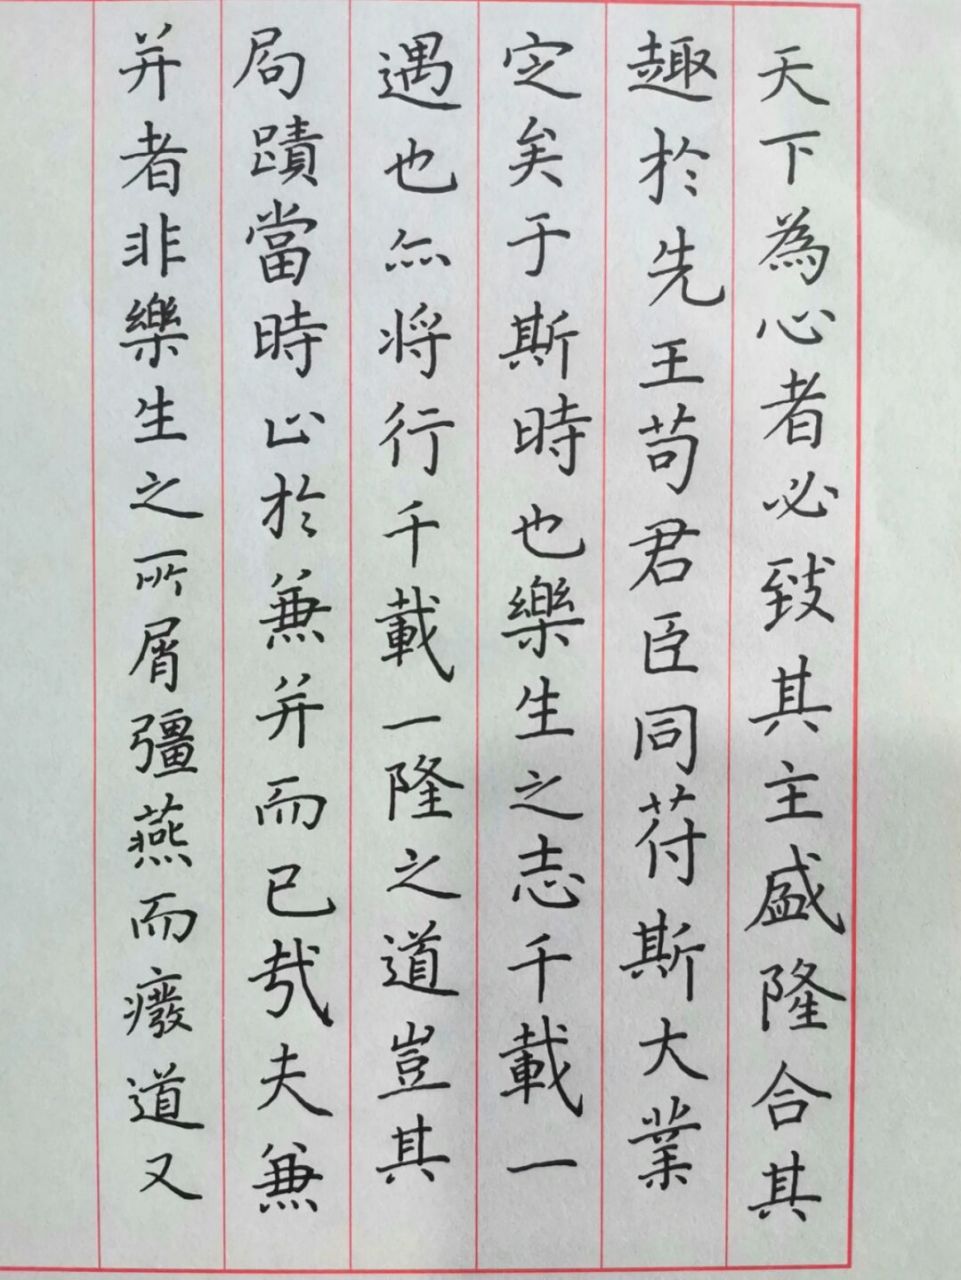 天下為心者必致其主盛隆合其
趣於先王苟君臣同苻斯大業
定矣于斯時也樂生之志千載一
遇也亦将行千載一隆之道豈其
局蹟當時止於兼并而已㢤夫兼
并者非樂生之所屑彊燕而癈道又